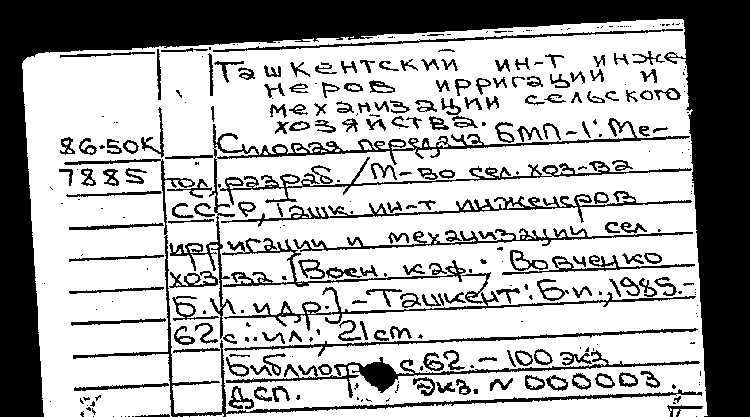 Ташкентский ин-т инже-
неров ирригации и
механизации сельского
хозяйства.
86-50К Силовая передача БМП-1: Ме-
7885 тод. разраб. / М-во сел. хоз-ва
СССР, Ташк. ин-т инженеров
ирригации и механизации сел.
хоз-ва. [Воен. каф.; Вовченко
Б.И. и др.]. - Ташкент: Б.и., 1985.-
62 с.: ил.; 21 см.
Библиогр.: с. 62. - 100 экз.
ДСП. Экз. N 000003.